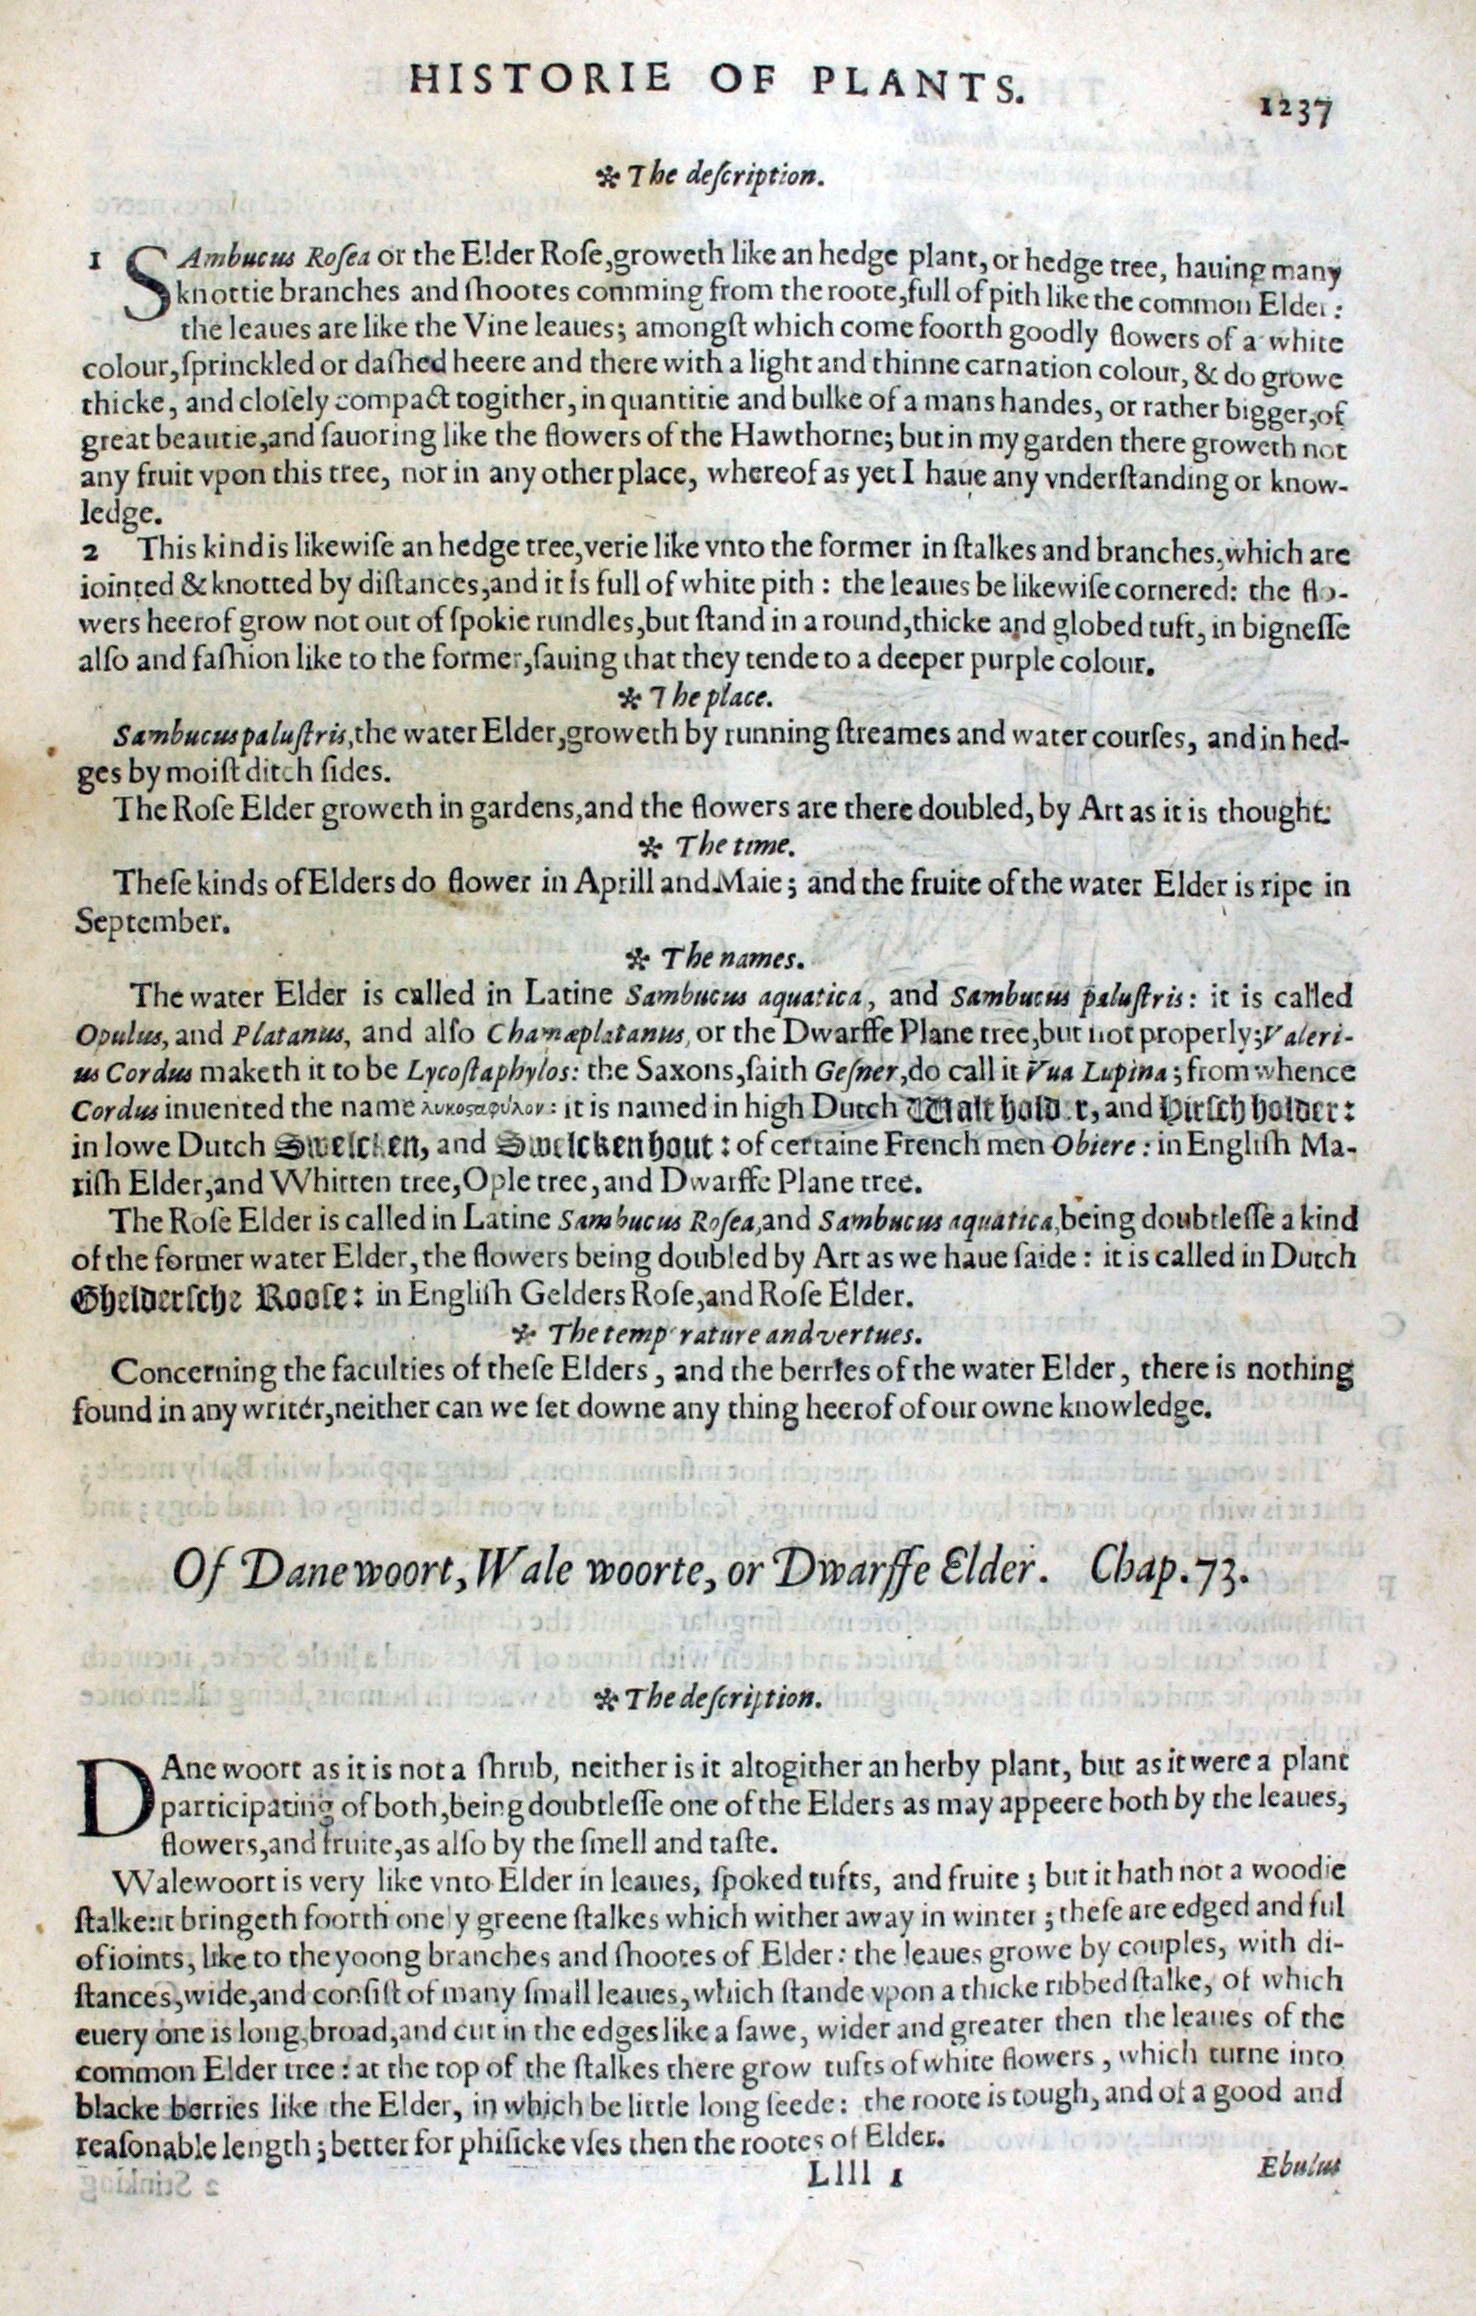 HISTORIE OF PLANTS.
1237
✲ The deſcription.
1 SAmbucus Roſea or the Elder Roſe,groweth like an hedge plant, or hedge tree, hauing many
knottie branches and ſhootes comming from the roote,full of pith like the common Elder:
the leaues are like the Vine leaues; amongſt which come foorth goodly flowers of a white
colour,ſprinckled or daſhed heere and there with a light and thinne carnation colour, & do growe
thicke, and cloſely compact togither, in quantitie and bulke of a mans handes, or rather bigger,of
great beautie,and ſauoring like the flowers of the Hawthorne; but in my garden there groweth not
any fruit vpon this tree, nor in any other place, whereof as yet I haue any vnderſtanding or know-
ledge.
2 This kind is likewiſe an hedge tree,verie like vnto the former in ſtalkes and branches,which are
iointed & knotted by diſtances,and it is full of white pith : the leaues be likewiſe cornered: the flo-
wers heerof grow not out of ſpokie rundles,but ſtand in a round,thicke and globed tuft, in bigneſſe
alſo and faſhion like to the former,ſauing that they tende to a deeper purple colour.
✲ The place.
Sambucus paluſtris,the water Elder,groweth by running ſtreames and water courſes, and in hed-
ges by moiſt ditch ſides.
The Roſe Elder groweth in gardens,and the flowers are there doubled, by Art as it is thought.
✲ The time.
Theſe kinds of Elders do flower in Aprill and Maie; and the fruite of the water Elder is ripe in
September.
✲ The names.
The water Elder is called in Latine Sambucus aquatica, and Sambucus paluſtris: it is called
Opulus, and Platanus, and alſo Chamæplatanus, or the Dwarffe Plane tree,but not properly;Valeri-
us Cordus maketh it to be Lycoſtaphylos: the Saxons,ſaith Geſner,do call it Vua Lupina; from whence
Cordus inuented the name λυκοςαφύλον: it is named in high Dutch Walt holder, and Hirſch holder:
in lowe Dutch Swelcken, and Swelckenhout: of certaine French men Obiere: in Engliſh Ma-
riſh Elder,and Whitten tree,Ople tree, and Dwarffe Plane tree.
The Roſe Elder is called in Latine Sambucus Roſea,and Sambucus aquatica,being doubtleſſe a kind
of the former water Elder, the flowers being doubled by Art as we haue ſaide : it is called in Dutch
Gheldersche Roose: in Engliſh Gelders Roſe,and Roſe Elder.
✲ The temperature and vertues.
Concerning the faculties of theſe Elders, and the berries of the water Elder, there is nothing
found in any writer,neither can we ſet downe any thing heerof of our owne knowledge.
Of Danewoort, Wale woorte, or Dwarffe Elder. Chap. 73.
✲ The deſcription.
DAne woort as it is not a ſhrub, neither is it altogither an herby plant, but as it were a plant
participating of both,being doubtleſſe one of the Elders as may appeere both by the leaues,
flowers,and fruite,as alſo by the ſmell and taſte.
Walewoort is very like vnto Elder in leaues, ſpoked tufts, and fruite ; but it hath not a woodie
ſtalke:it bringeth foorth onely greene ſtalkes which wither away in winter ; theſe are edged and ful
of ioints, like to the yoong branches and ſhootes of Elder: the leaues growe by couples, with di-
ſtances,wide,and conſiſt of many ſmall leaues, which ſtande vpon a thicke ribbed ſtalke, of which
euery one is long,broad,and cut in the edges like a ſawe, wider and greater then the leaues of the
common Elder tree: at the top of the ſtalkes there grow tufts of white flowers, which turne into
blacke berries like the Elder, in which be little long ſeede: the roote is tough, and of a good and
reaſonable length ; better for phiſicke vſes then the rootes of Elder.
Llll 1
Ebulus